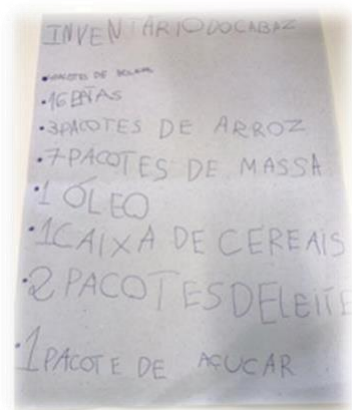 INVENTÁRIO DO CABAZ
• PACOTES DE
• 16
• 3 PACOTES DE ARROZ
• 7 PACOTES DE MASSA
• 1 ÓLEO
• 1 CAIXA DE CEREAIS
• 2 PACOTES DE LEITE
• 1 PACOTE DE AÇUCAR